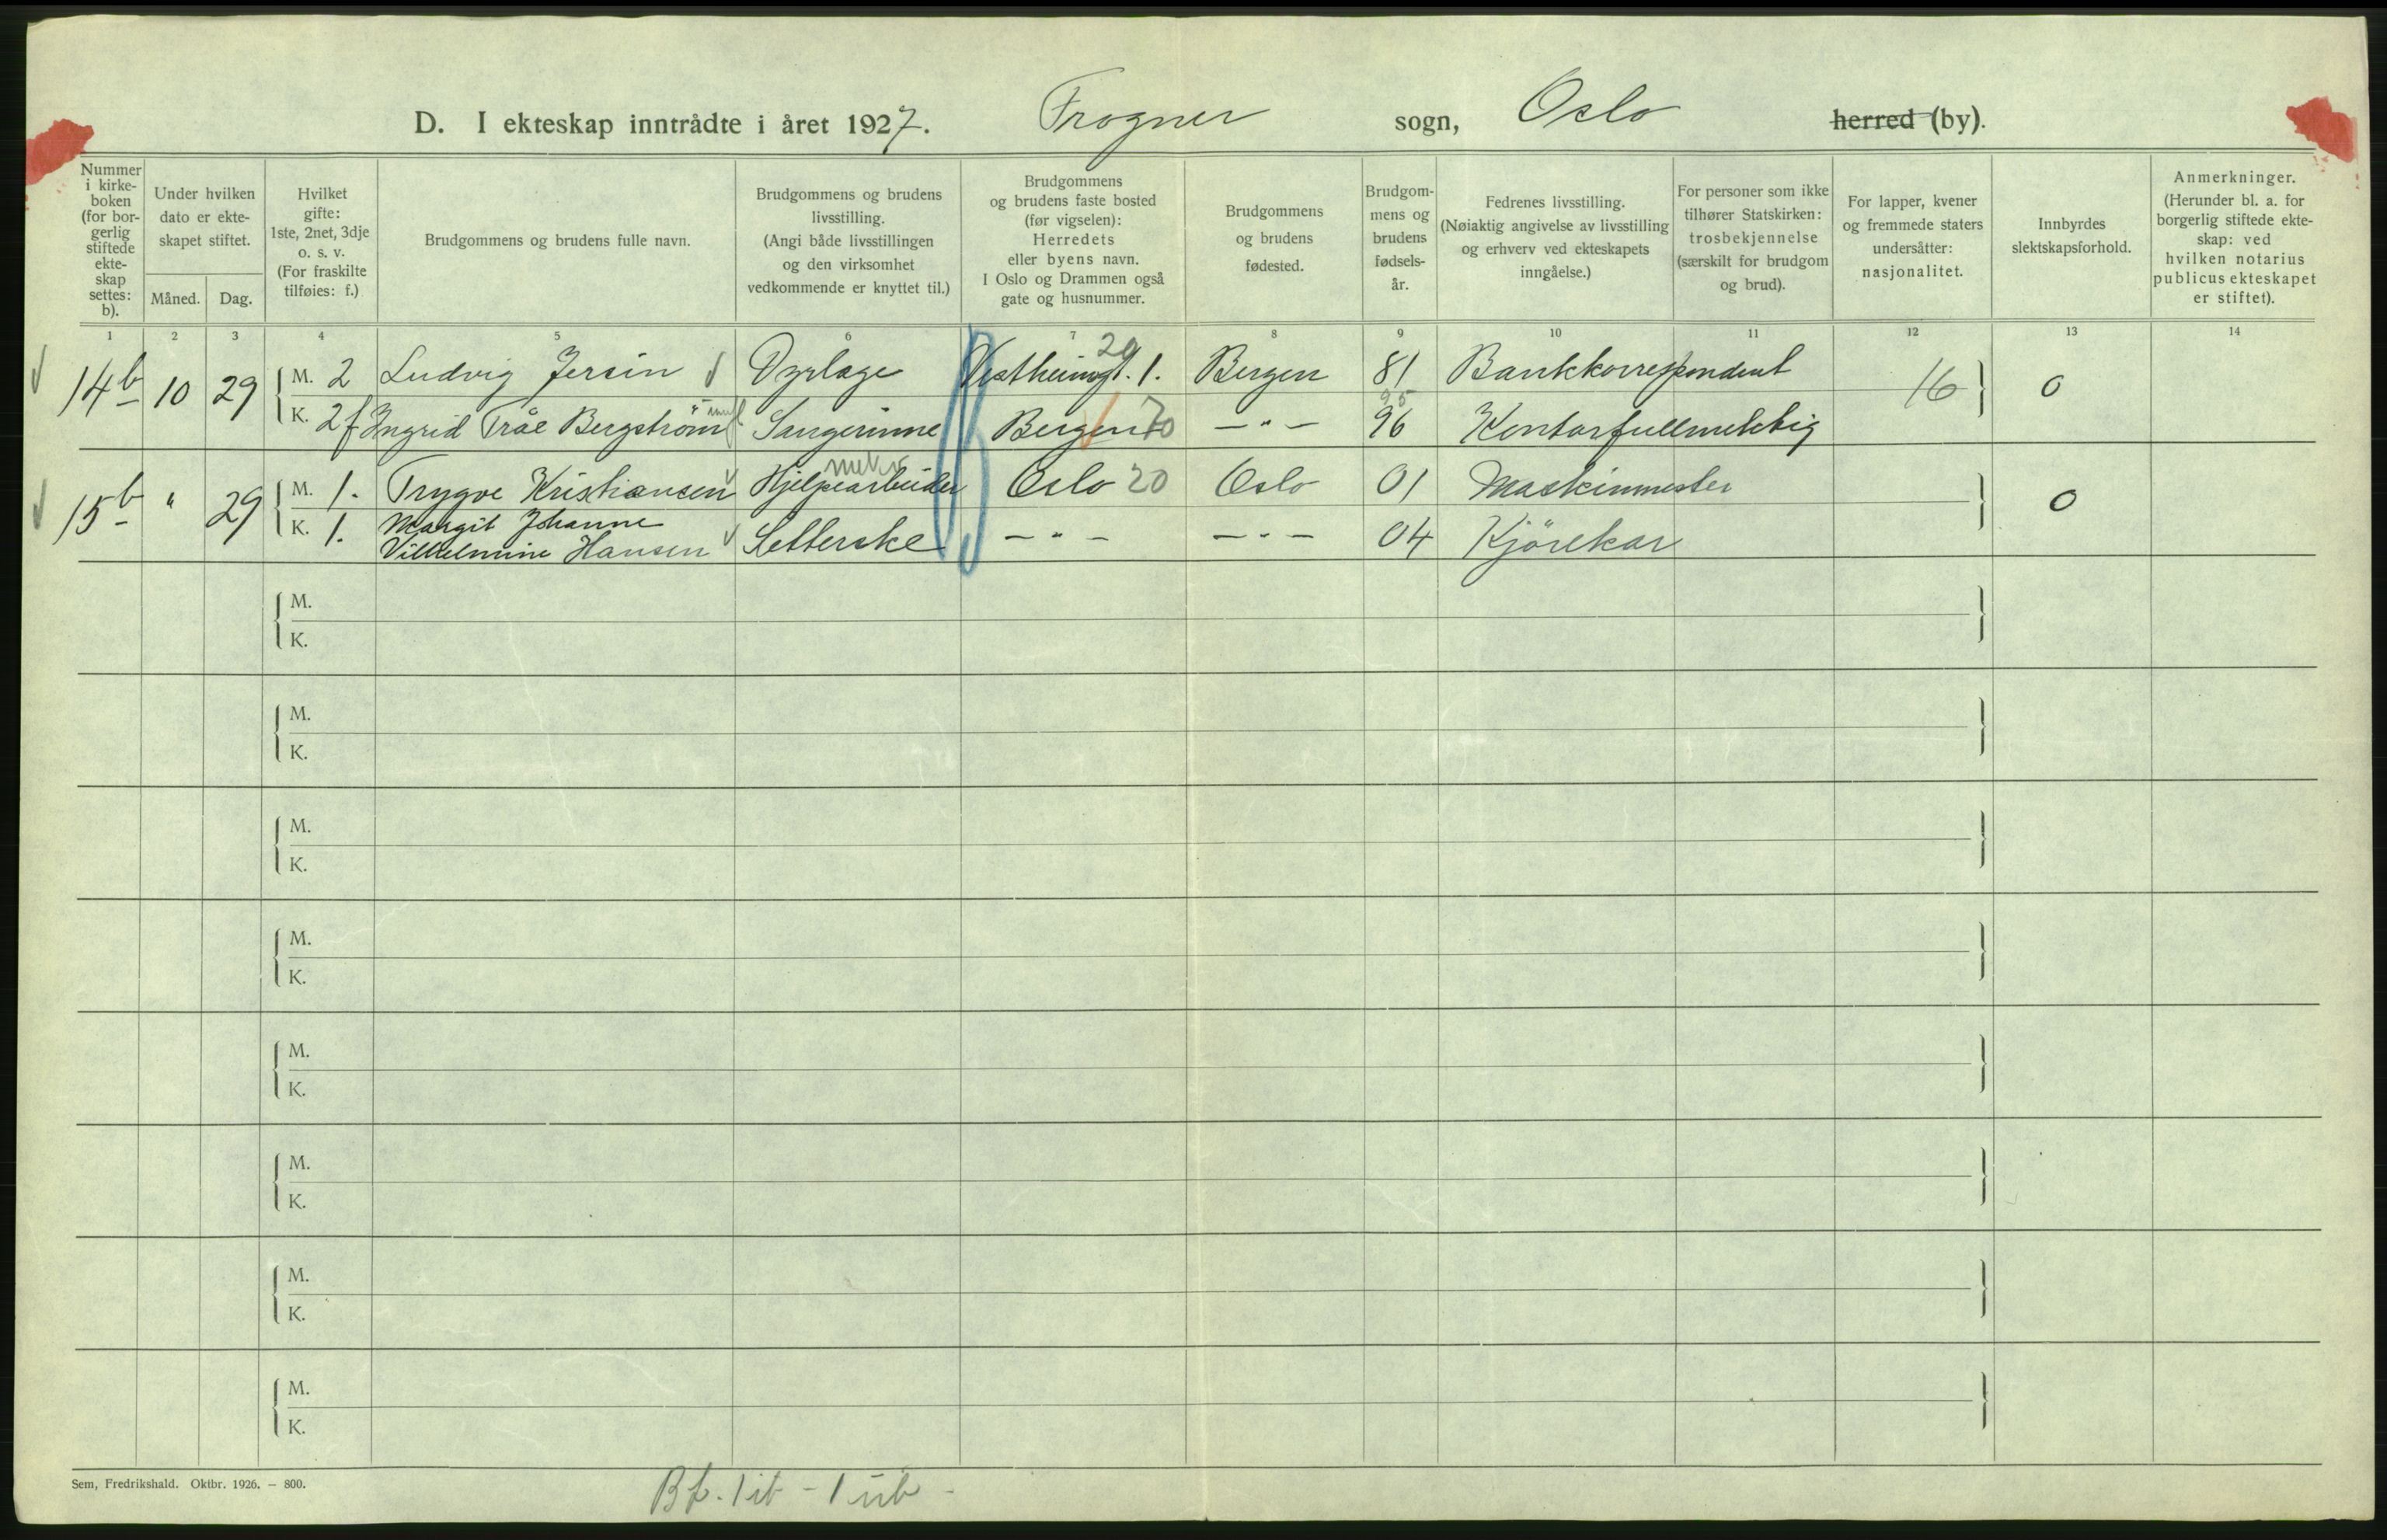 D. I ekteskap inntrådte i året 1927. Frogner sogn, Oslo herred (by).
Nummer i kirke- boken (for bor- gerlig stiftede ekte- skap settes: b).
Under hvilken dato er ekte- skapet stiftet.
Måned. Dag.
Hvilket gifte: 1ste, 2net, 3dje o. s. v. (For fraskilte tilføies: f.)
Brudgommens og brudens fulle navn.
Brudgommens og brudens livsstilling. (Angi både livsstillingen og den virksomhet vedkommende er knyttet til.)
Brudgommens og brudens faste bosted (før vigselen): Herredets eller byens navn. I Oslo og Drammen også gate og husnummer.
Brudgommens og brudens fødested.
Brudgom- mens og brudens fødsels- år.
Fedrenes livsstilling. (Nøiaktig angivelse av livsstilling og erhverv ved ekteskapets inngåelse.)
For personer som ikke tilhører Statskirken: trosbekjennelse (særskilt for brudgom og brud).
For lapper, kvener og fremmede staters undersåtter: nasjonalitet.
Innbyrdes slektskapsforhold.
Anmerkninger. (Herunder bl. a. for borgerlig stiftede ekte- skap: ved hvilken notarius publicus ekteskapet er stiftet).
1 2 3 4 5 6 7 8 9 10 11 12 13 14
14b 10 29 M. 2 Ludvig Jersin Dyrlæge Vestheimgt. 1. 20 Bergen 81 Bankkorrespondent 16 0
K. 2f Ingrid Tråe Bergström Sangerinne Bergen 70 — " — 95 96 Kontorfullmektig
15b " 29 M. 1. Trygve Kristiansen Hjelpearbeider Oslo 20 Oslo 01 Maskinmester 0
K. 1. Margit Johanne Vilhelmine Hansen Setterske — " — — " — 04 Kjörekar
M.
K.
M.
K.
M.
K.
M.
K.
M.
K.
M.
K.
M.
K.
M.
K.
Sem, Fredrikshald. Oktbr. 1926. — 800.